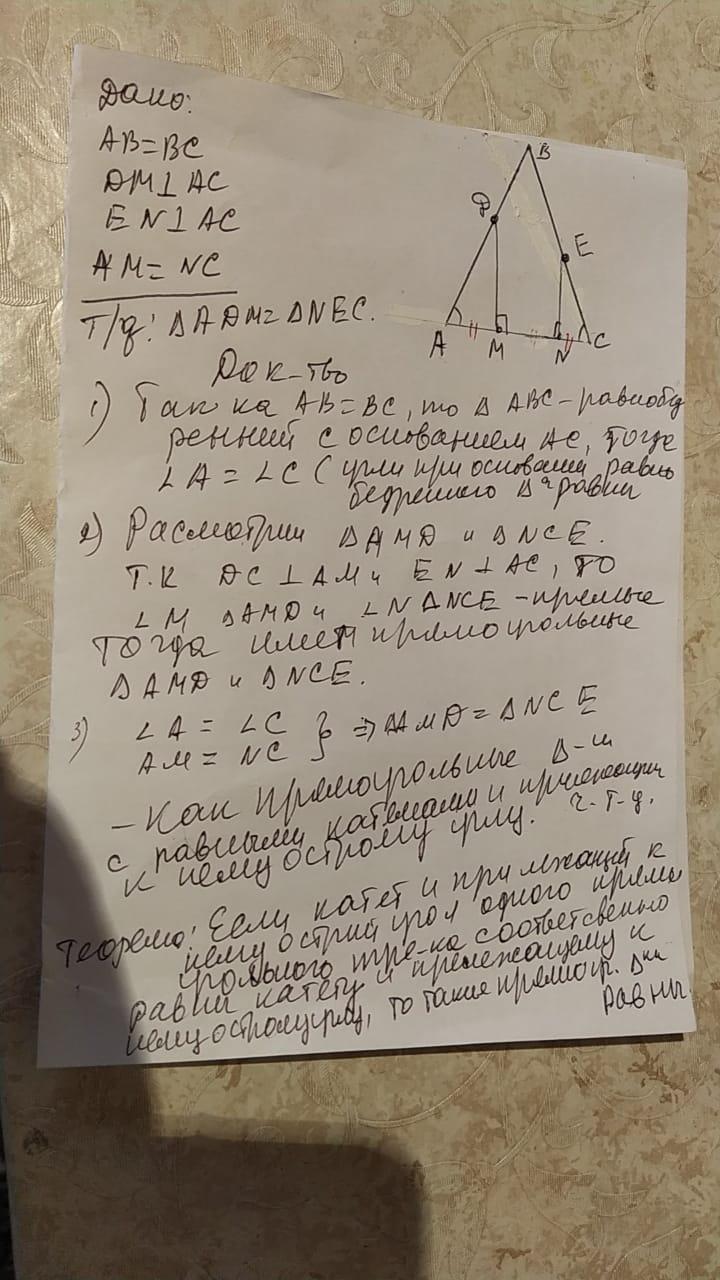 Дано:
AB=BC
DM⊥AC
EN⊥AC
AM=NC
Т/д: ΔADM=ΔNEC.
B
D
E
A
M
N
C
Док-тво
1) Так ка AB=BC, то Δ ABC-равнобед
ренний с основанием AC, тогде
∠A = ∠C (углы при основани равно
бедренного Δ равны
2) Расмотрим ΔAMD и ΔNCE.
Т.К DC⊥AM и EN⊥AC, то
∠M ΔAMD и ∠N ΔNCE -прямые
Тогда имеем прямоугольные
ΔAMD и ΔNCE.
3) ∠A = ∠C
AM = NC } ⇒ ΔAMD = ΔNCE
- Как прямоугольные Δ-и
с равными катетами и прилежащим
к нему острому углу. ч.т.д.
Теорема: Если катет и прилежащий к
нему острий угол одного прямо
угольного тре-ка соответсвенно
равни катету и прилежащему к
нему острому углу, то такие прямоуг. Δки
равны.